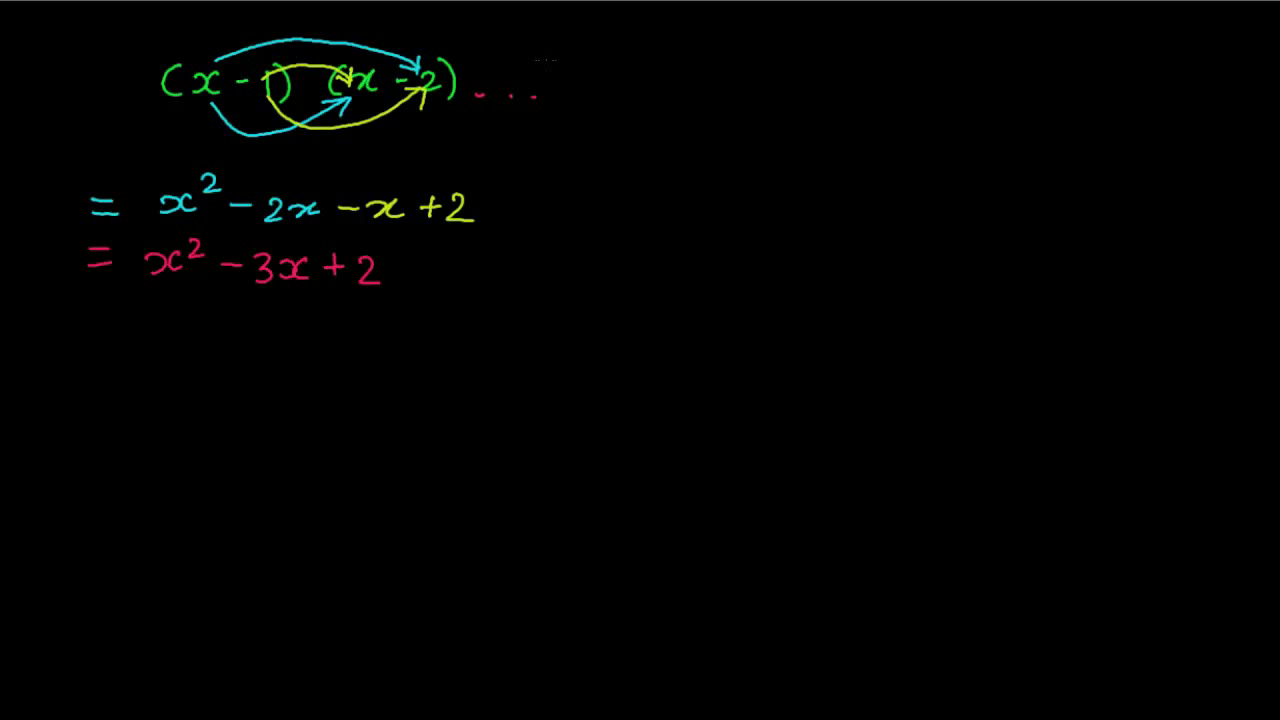 (x - 1) (x - 2) . . .
= x² - 2x - x + 2
= x² - 3x + 2